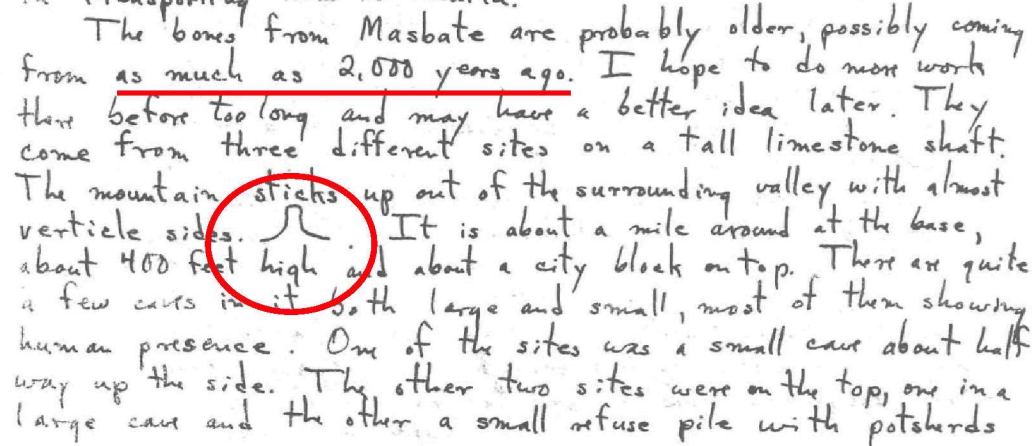 in Transporting
The bones from Masbate are probably older, possibly coming
from as much as 2,000 years ago. I hope to do more work
there before too long and may have a better idea later. They
come from three different sites on a tall limestone shaft.
The mountain sticks up out of the surrounding valley with almost
verticle sides. . It is about a mile around at the base,
about 400 feet high and about a city block on top. There are quite
a few caves in it both large and small, most of them showing
human presence. One of the sites was a small cave about half
way up the side. The other two sites were on the top, one in a
large cave and the other a small refuse pile with potsherds